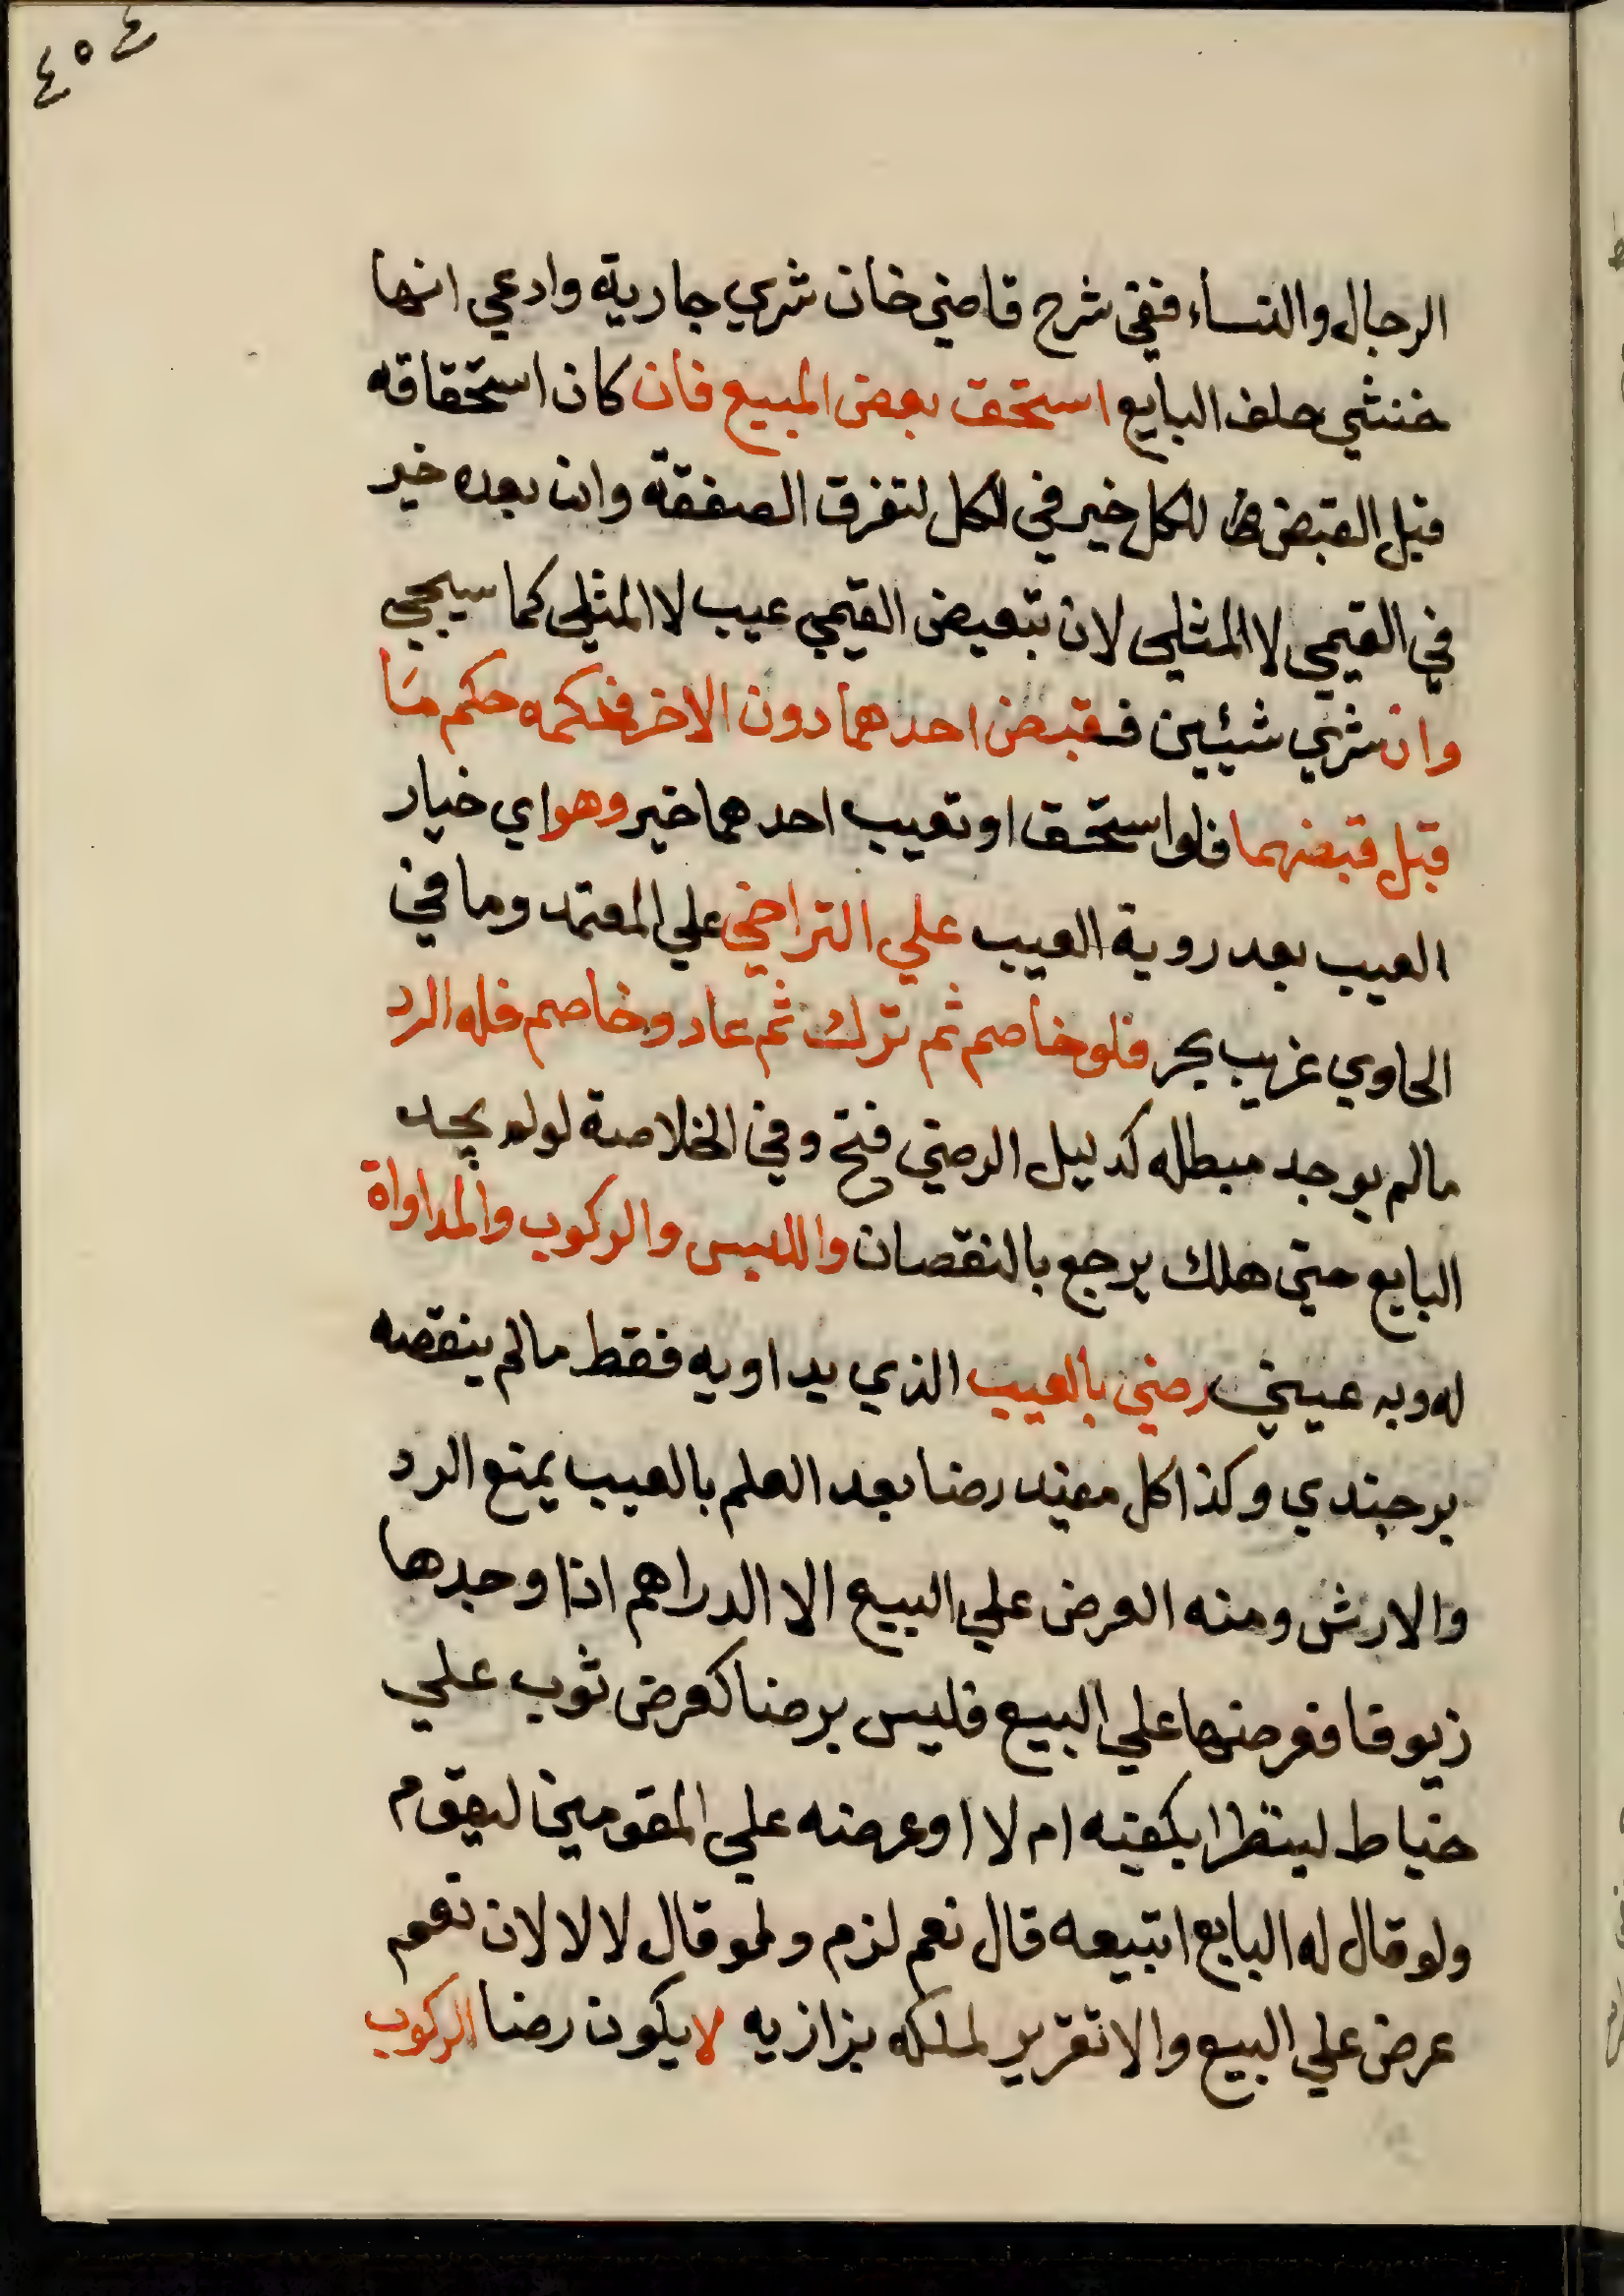 ٤٥٤
الرجال والنساء ففي شرح قاضي خان شري جارية وادعي انها
خنثي حلف البايع استحق بعض المبيع فان كان استحقاقه
قبل القبض للكل خير في الكل لتفرق الصفقة وان بعده خير
في القيمي لا المثلي لان تبعيض القيمي عيب لا المثلي كما سيجي
وان شري شيئين فقبض احدهما دون الاخر فحكمه حكم ما
قبل قبضهما فلو استحق او تعيب احدهما خير وهو اي خيار
العيب بعد روية العيب علي التراخي علي المعتمد وما في
الحاوي غريب بحر فلو خاصم ثم ترك ثم عاد وخاصم فله الرد
مالم يوجد مبطله كدليل الرضي فتح وفي الخلاصة لو لم يجد
البايع حتي هلك يرجع بالنقصان واللبس والركوب والمداواة
له وبه عيني رضي بالعيب الذي يداويه فقط مالم ينقصه
برجندي وكذا كل مفيد رضا بعد العلم بالعيب يمنع الرد
والارش ومنه العرض علي البيع الا الدراهم اذا وجدها
زيوفا فعرضها علي البيع فليس برضا كعرض ثوب علي
خياط لينظر ايكفيه ام لا او عرضه علي المقومين ليقوم
ولو قال له البايع اتبيعه قال نعم لزم ولو قال لا لا لان نعم
عرض علي البيع والا تقرير لملكه بزازيه لا يكون رضا الركوب